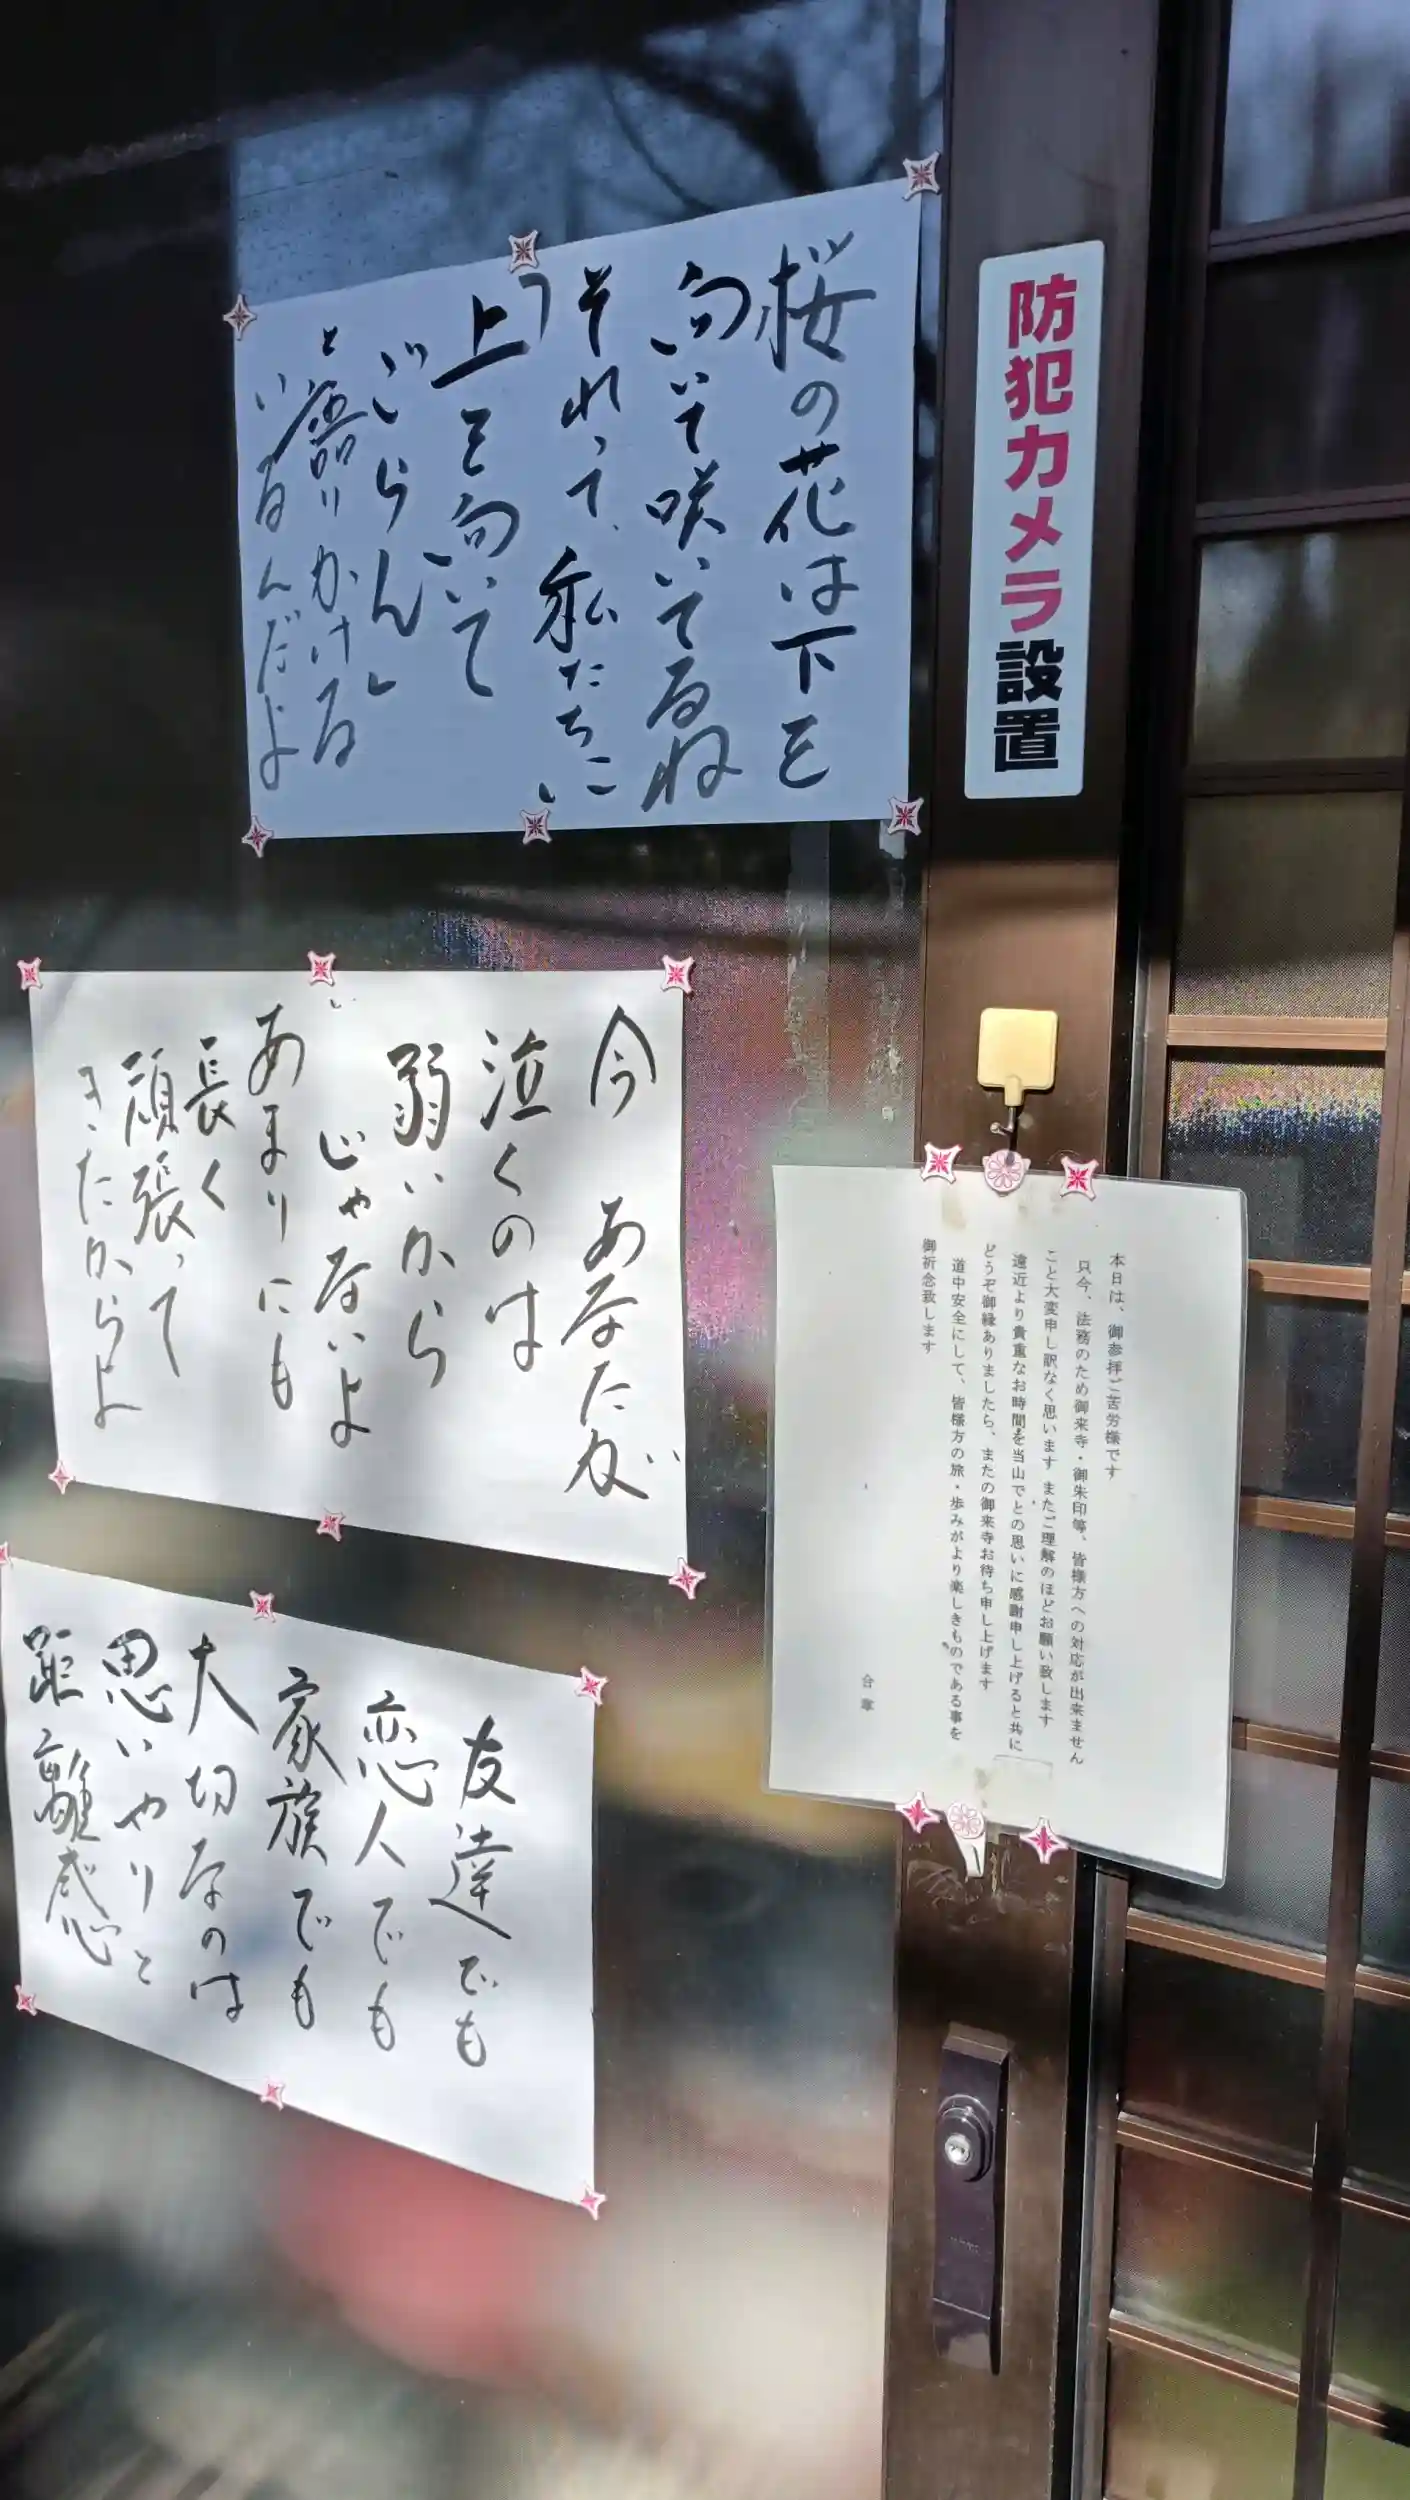 防犯カメラ設置
桜の花は下を
向いて咲いてるね
それって、私たちに
「上を向いて
ごらん」
と語りかける
いるんだよ
今 あなたが
泣くのは
弱いから
じゃないよ
あまりにも
長く
頑張って
きたからよ
友達でも
恋人でも
家族でも
大切なのは
思いやりと
距離感
本日は、御参拝ご苦労様です
只今、法務のため御来寺・御朱印等、皆様方への対応が出来ません
こと大変申し訳なく思います またご理解のほどお願い致します
遠近より貴重なお時間を当山でとの思いに感謝申し上げると共に
どうぞ御縁ありましたら、またの御来寺お待ち申し上げます
道中安全にして、皆様方の旅・歩みがより楽しきものである事を
御祈念致します
合掌